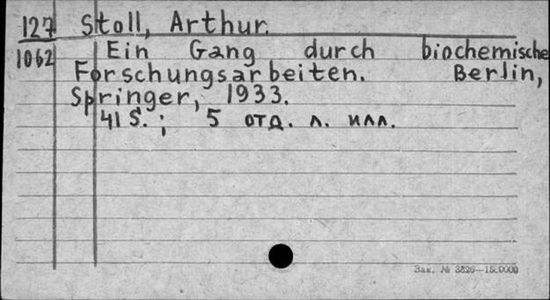 127 Stoll, Arthur.
1062 Ein Gang durch biochemische
Forschungsarbeiten. Berlin,
Springer, 1933.
41 S.; 5 отд. л. илл.
Зак. №